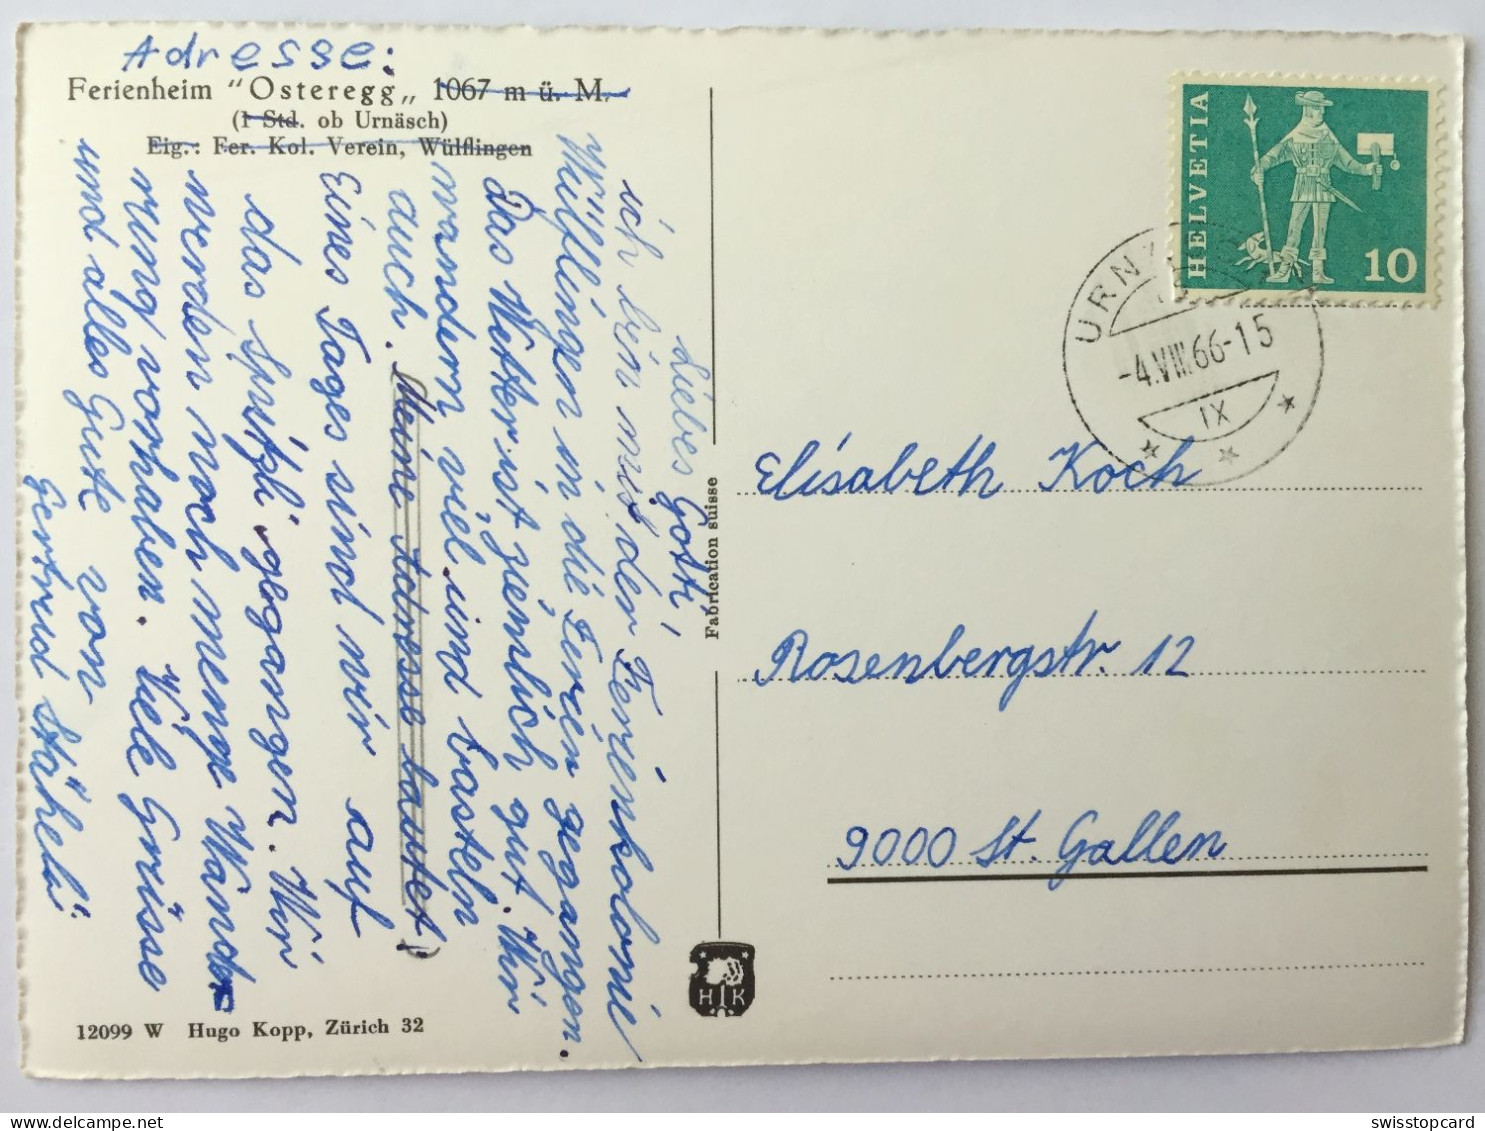 Adresse:
Ferienheim "Osteregg„ 1067 m ü. M.
(1 Std. ob Urnäsch)
Eig.: Fer. Kol. Verein, Wülflingen
Liebes Gotti,
ich bin mit der Ferienkolonie
Wülflingen in die Ferien gegangen.
Das Wetter ist ziemlich gut. Wir
wandern viel und basteln
auch. Meine Adresse lautet:
Eines Tages sind wir auf
das Spitzli gegangen. Wir
werden noch menge Wande
rung vorhaben. Viele Grüsse
und alles Gute von
Gertrud Stäheli
12099 W Hugo Kopp, Zürich 32
Fabrication suisse
HK
HELVETIA
10
URNÄSCH
-4.VIII.66-15
IX
Elisabeth Koch
Rosenbergstr. 12
9000 St. Gallen
swisstopcard